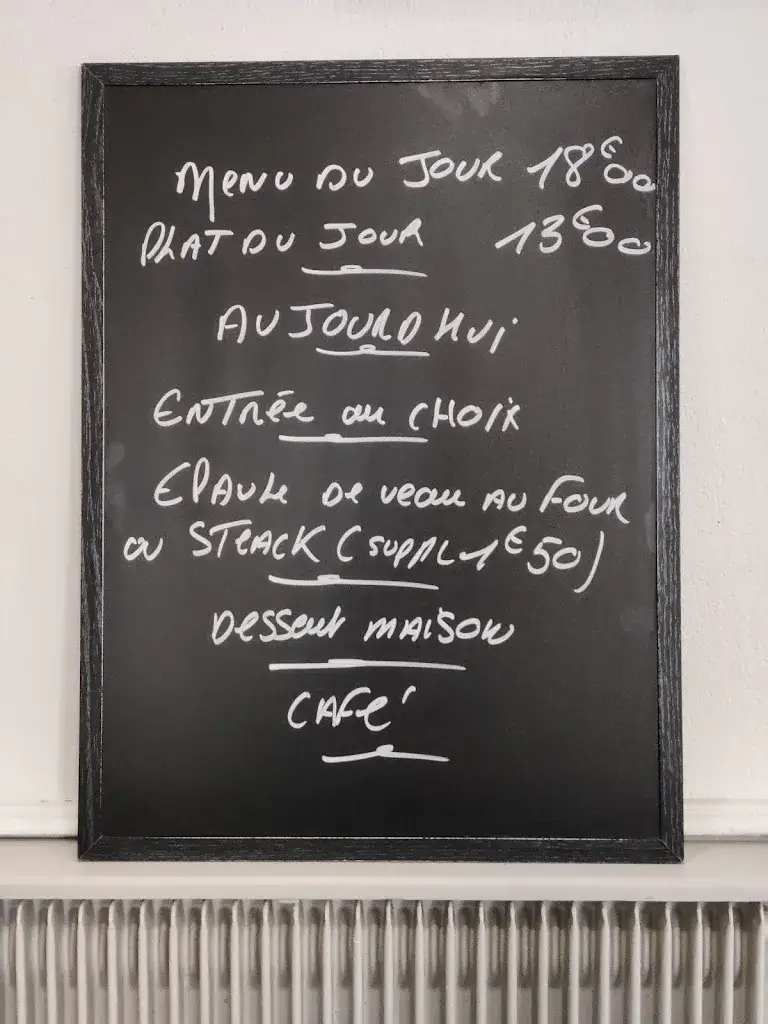 MENU DU JOUR 18€00
PLAT DU JOUR 13€00
AUJOURD HUI
ENTRÉE au CHOIX
EPAULE DE veau AU FOUR
ou STEACK (SUPPL 1€50)
DESSERT MAISON
CAFÉ